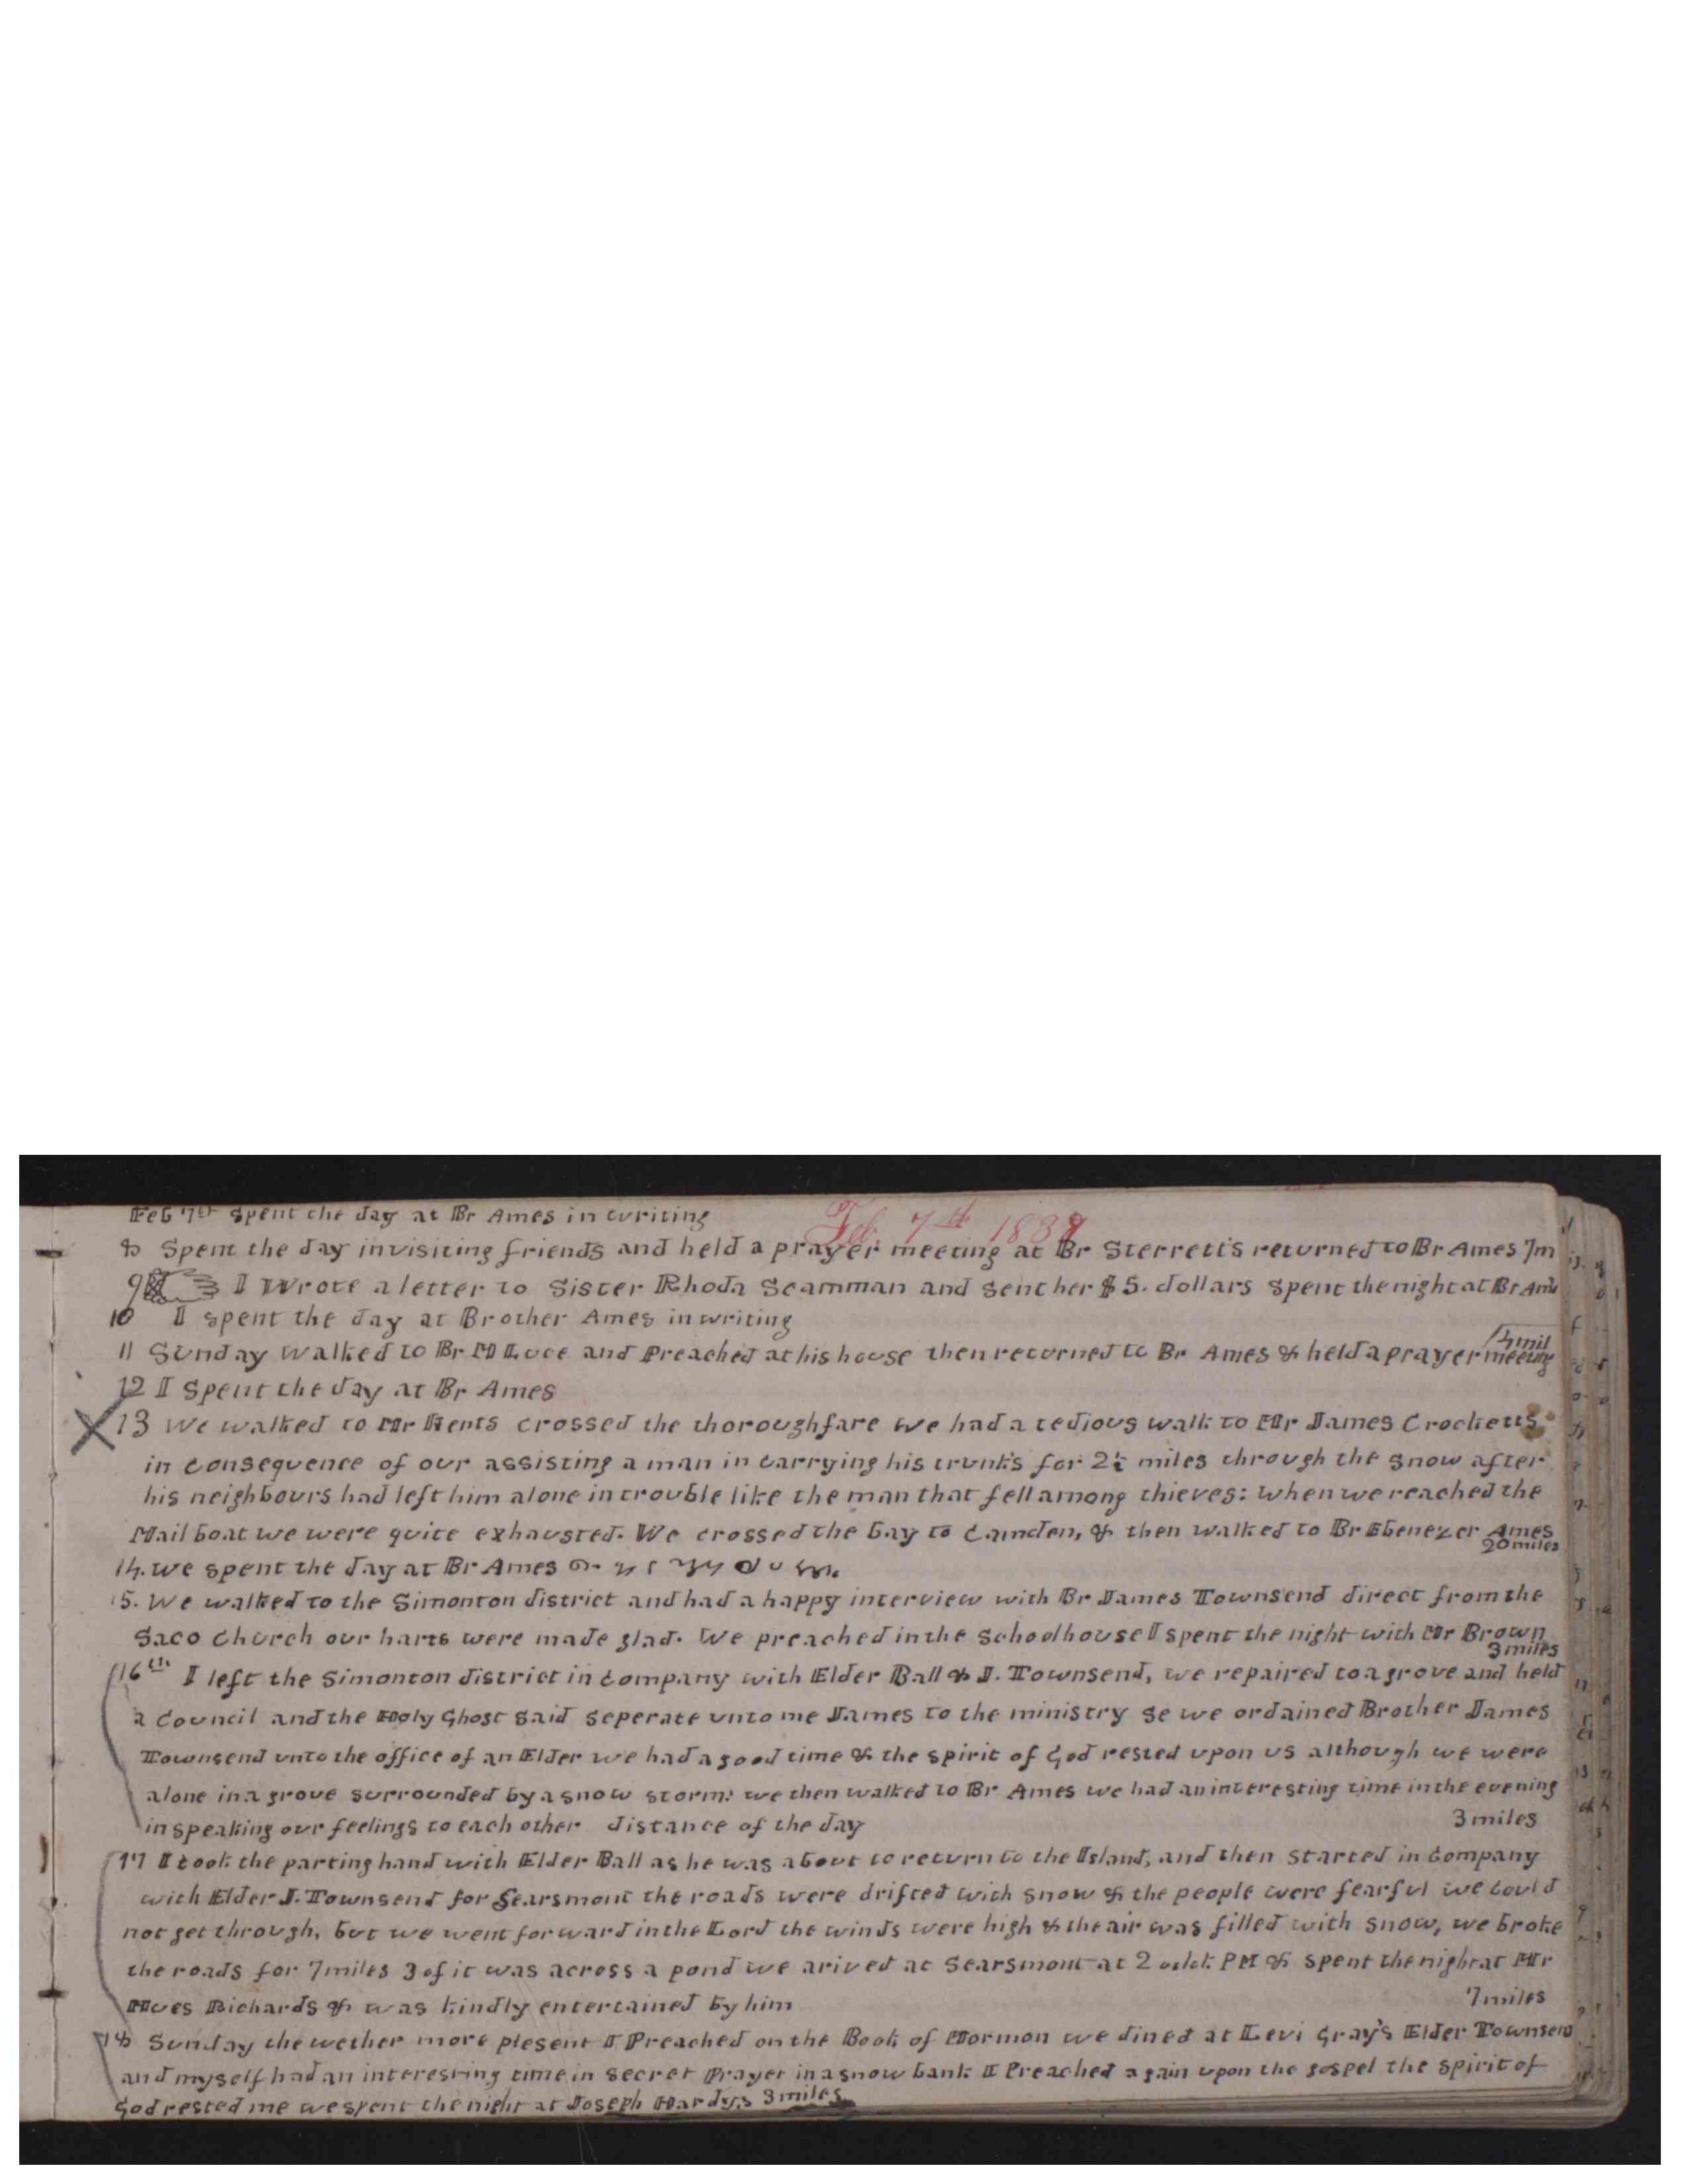 Feb 7th Spent the day at Br Ames in writing
Feb. 7th 1838
8 Spent the day in visiting friends and held a prayer meeting at Br Sterrett's returned to Br Ames 7m
9 I Wrote a letter to Sister Rhoda Scamman and sent her $5. dollars Spent the night at Br Ames
10 I spent the day at Brother Ames in writing
4 mil
11 Sunday walked to Br M Luce and Preached at his house then returned to Br Ames & held a prayer meeting
12 I Spent the day at Br Ames
13 We walked to Mr Kents crossed the thoroughfare we had a tedious walk to Mr James Crocketts
in consequence of our assisting a man in carrying his trunks for 2½ miles through the snow after
his neighbours had left him alone in trouble like the man that fell among thieves: when we reached the
Mail boat we were quite exhausted. We crossed the bay to Camden, & then walked to Br Ebenezer Ames
20 miles
14. We spent the day at Br Ames
15. We walked to the Simonton district and had a happy interview with Br James Townsend direct from the
Saco Church our harts were made glad. We preached in the Schoolhouse I spent the night with Mr Brown
3 miles
16th I left the Simonton district in company with Elder Ball & J. Townsend, we repaired to a grove and held
a Council and the Holy Ghost said seperate unto me James to the ministry se we ordained Brother James
Townsend unto the office of an Elder we had a good time & the spirit of God rested upon us although we were
alone in a grove surrounded by a snow storm: we then walked to Br Ames we had an interesting time in the evening
in speaking our feelings to each other distance of the day 3 miles
17 I took the parting hand with Elder Ball as he was about to return to the Island, and then started in company
with Elder J. Townsend for Searsmont the roads were drifted with snow & the people were fearful we could
not get through, but we went forward in the Lord the winds were high & the air was filled with snow, we broke
the roads for 7 miles 3 of it was across a pond we arived at Searsmont at 2 oclok PM & spent the night at Mr
Richards & was kindly entertained by him 7 miles
18 Sunday the wether more plesent I Preached on the Book of Mormon we dined at Levi Gray's Elder Townsend
and myself had an interesting time in secret Prayer in a snow bank I Preached again upon the gospel the spirit of
God rested me we spent the night at Joseph Hardy's 3 miles